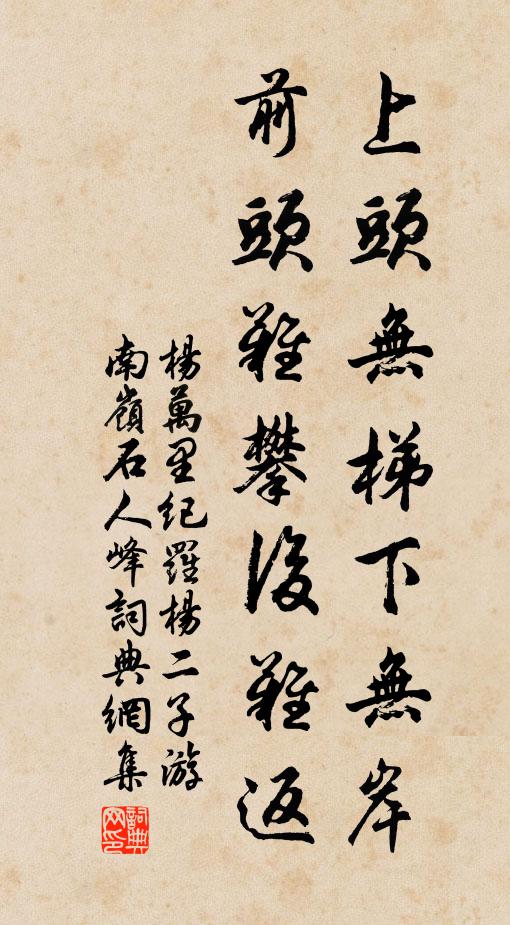 上頭無梯下無岸
前頭難攀後難返
楊萬里紀羅楊二子游
南嶺石人峰詞典網集
詞典
网印